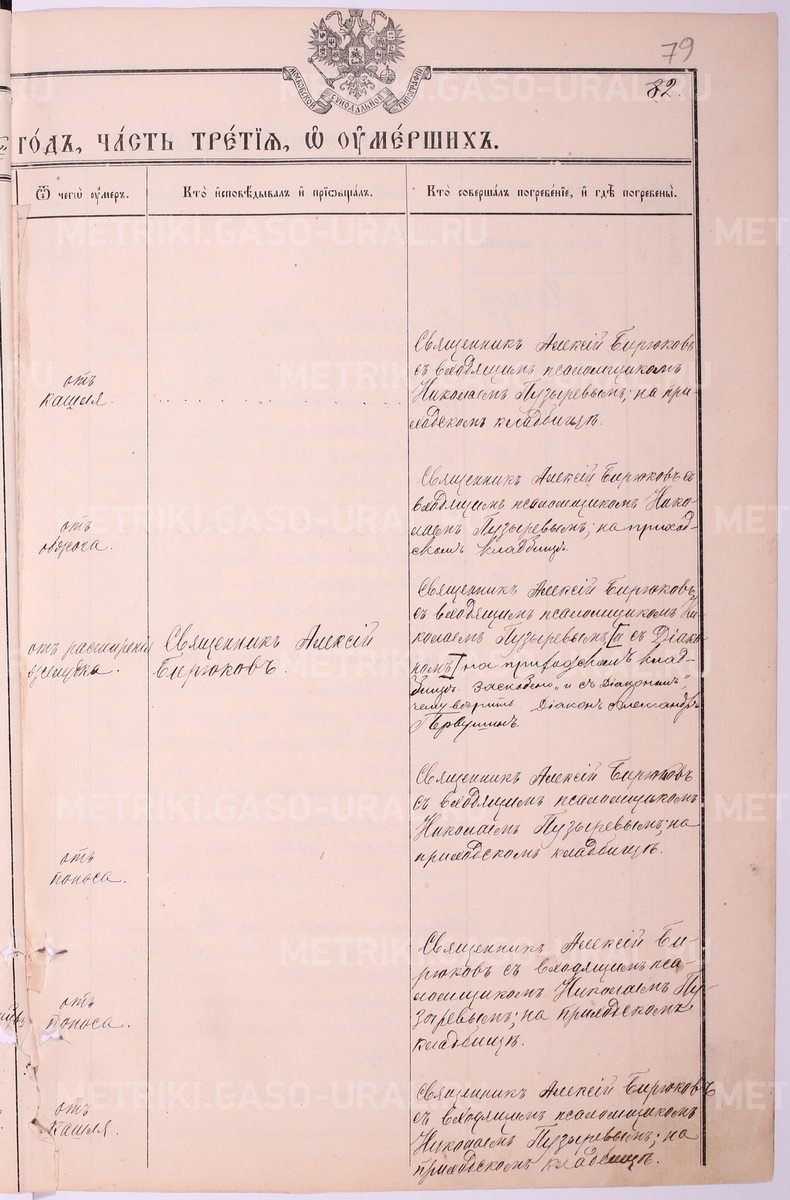 79
82.
МОСКОВСКОЙ СѴНОДАЛЬНОЙ ТИПОГРАФІИ
ГОДЪ, ЧАСТЬ ТРЕТІЯ, Ѽ ОУМЕРШИХЪ.
Ѿ чегѡ оумеръ.
Кто исповѣдывалъ и пріобщалъ.
Кто совершалъ погребеніе, и гдѣ погребены.
отъ
кашля.
Священникъ Алексій Бирюковъ
съ входящимъ псаломщикомъ
Николаемъ Пузыревымъ; на при-
ходскомъ кладбищѣ.
отъ
ожога.
Священникъ Алексій Бирюковъ съ
входящимъ псаломщикомъ Нико-
лаемъ Пузыревымъ; на приход-
скомъ кладбищѣ.
отъ расширенія
желудка.
Священникъ Алексій
Бирюковъ.
Священникъ Алексій Бирюковъ
съ входящимъ псаломщикомъ Ни-
колаемъ Пузыревымъ [и съ Діако-
номъ] на приходскомъ клад-
бищѣ. Заскоблено „и съ Діакономъ",
чему вѣрить. Діаконъ Александръ
Первушинъ
отъ
поноса.
Священникъ Алексій Бирюковъ
съ входящимъ псаломщикомъ
Николаемъ Пузыревымъ; на
приходскомъ кладбищѣ.
отъ
поноса.
Священникъ Алексій Би-
рюковъ съ входящимъ пса-
ломщикомъ Николаемъ Пу-
зыревымъ; на приходскомъ
кладбищѣ.
отъ
кашля.
Священникъ Алексій Бирюковъ
съ входящимъ псаломщикомъ
Николаемъ Пузыревымъ; на
приходскомъ кладбищѣ.
METRIKI.GASO-URAL.RU